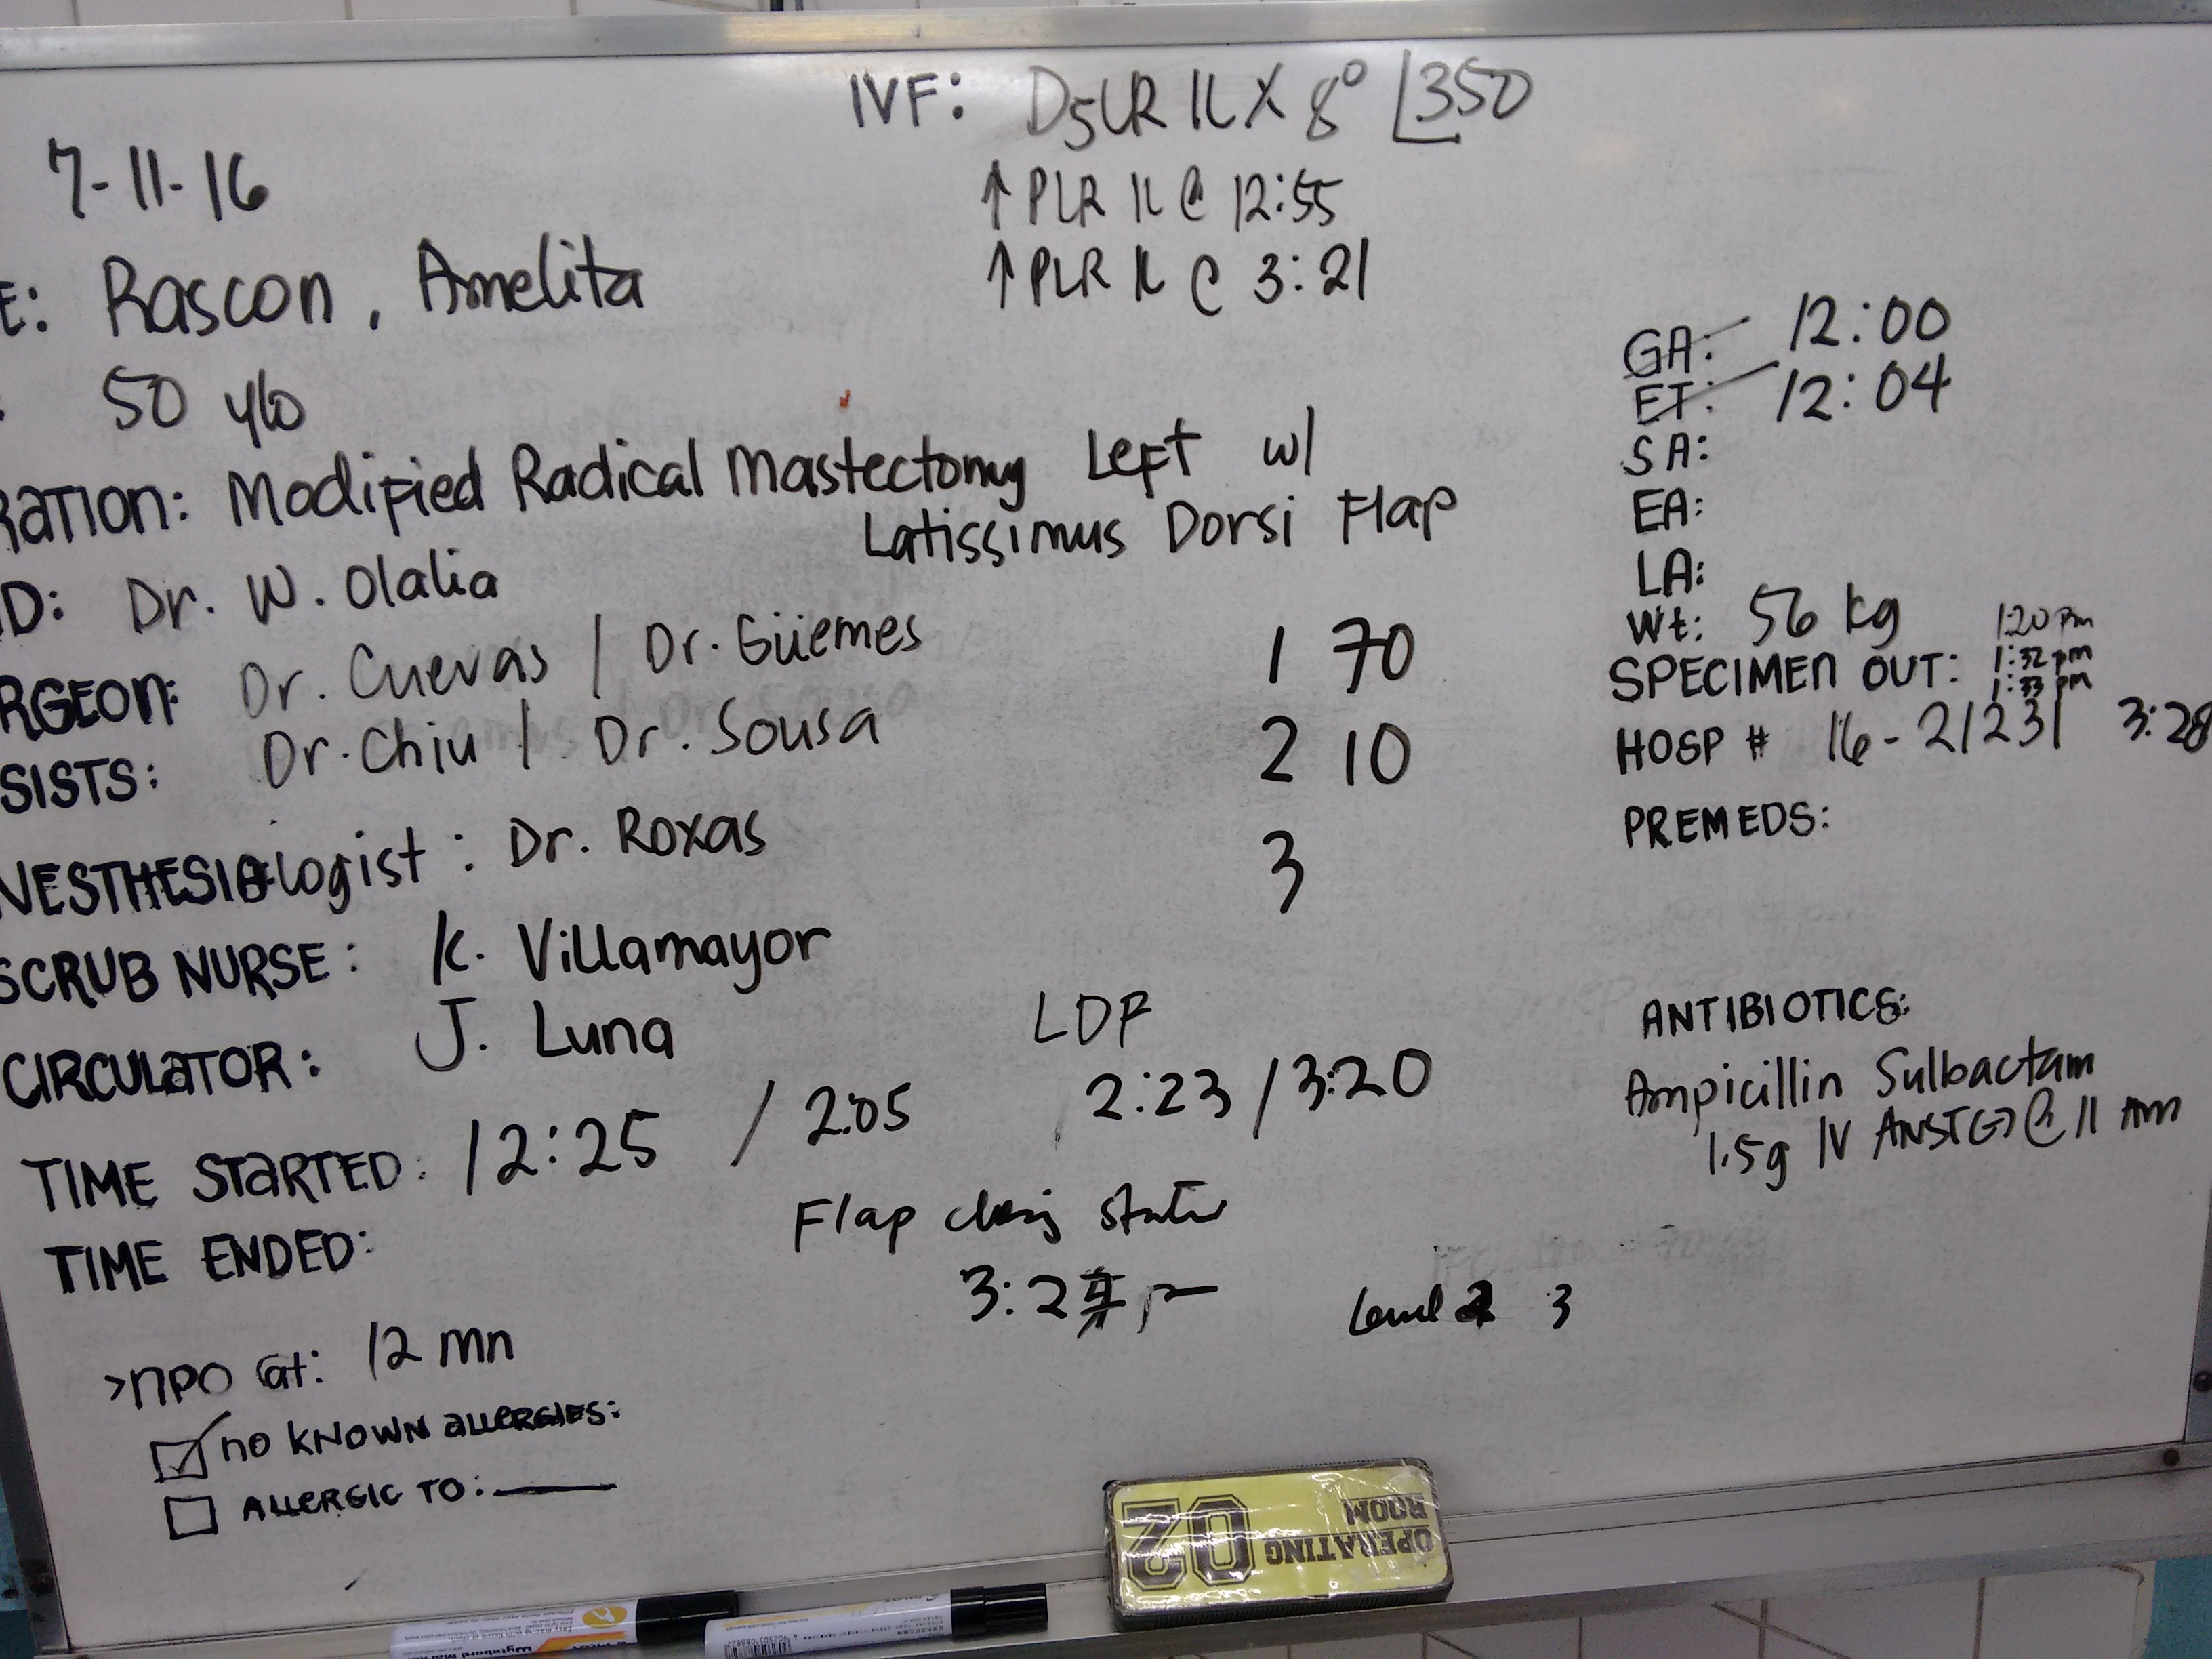 IVF: D5LR 1L X 8° 350
↑ PLR 1L @ 12:55
↑ PLR 1L @ 3:21
7-11-16
E: Rascon, Amelita
50 y/o
RATION: Modified Radical Mastectomy Left w/
Latissimus Dorsi Flap
D: Dr. W. Olalia
RGEON: Dr. Cuevas / Dr. Güemes
SISTS: Dr. Chiu / Dr. Sousa
NESTHESIOlogist: Dr. Roxas
SCRUB NURSE: K. Villamayor
CIRCULATOR: J. Luna
TIME STARTED: 12:25 / 2:05
LDF
2:23 / 3:20
TIME ENDED:
Flap
3:2
Level 3
>NPO at: 12 mn
NO KNOWN ALLERGIES:
ALLERGIC TO:
1 70
2 10
3
GA: 12:00
ET: 12:04
SA:
EA:
LA:
Wt: 56 kg
SPECIMEN OUT: 1:20 pm
1:32 pm
1:33 pm
3:28
HOSP # 16-21231
PREMEDS:
ANTIBIOTICS:
Ampicillin Sulbactam
1.5g IV ANST(-) @ 11 AM
OPERATING
ROOM
02